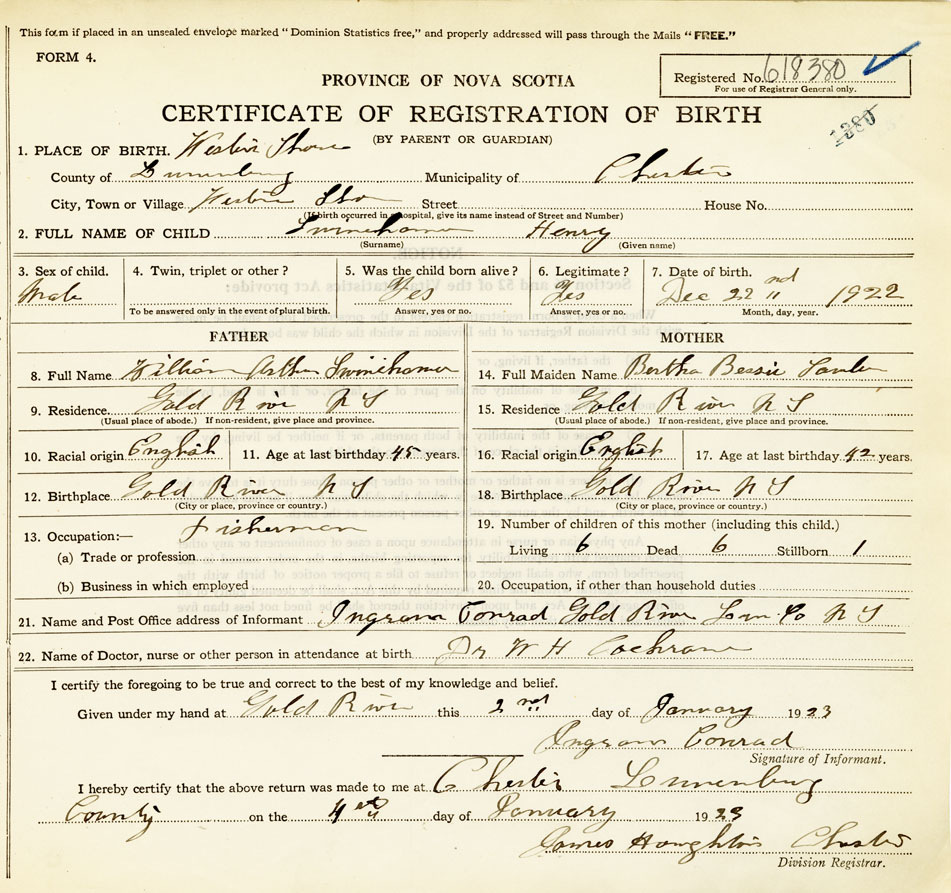 This form if placed in an unsealed envelope marked "Dominion Statistics free," and properly addressed will pass through the Mails "FREE."
FORM 4.
Registered No. 618380
For use of Registrar General only.
PROVINCE OF NOVA SCOTIA
CERTIFICATE OF REGISTRATION OF BIRTH
(BY PARENT OR GUARDIAN)
1. PLACE OF BIRTH. Western Shore
County of Lunenburg Municipality of Chester
City, Town or Village Western Sho Street House No.
(If birth occurred in a hospital, give its name instead of Street and Number)
2. FULL NAME OF CHILD Swinehamer Henry
(Surname) (Given name)
3. Sex of child. 4. Twin, triplet or other? 5. Was the child born alive? 6. Legitimate? 7. Date of birth.
Male Yes Yes Dec 22 nd 1922
To be answered only in the event of plural birth. Answer, yes or no. Answer, yes or no. Month, day, year.
FATHER MOTHER
8. Full Name William Arthur Swinehamer 14. Full Maiden Name Bertha Bessie
9. Residence. Gold River N S 15. Residence Gold River N S
(Usual place of abode.) If non-resident, give place and province. (Usual place of abode.) If non-resident, give place and province.
10. Racial origin English 11. Age at last birthday 45 years. 16. Racial origin English 17. Age at last birthday 42 years.
12. Birthplace Gold River N S 18. Birthplace Gold River N S
(City or place, province or country.) (City or place, province or country.)
13. Occupation:— Fisherman 19. Number of children of this mother (including this child.)
(a) Trade or profession Living 6 Dead 6 Stillborn 1
(b) Business in which employed 20. Occupation, if other than household duties
21. Name and Post Office address of Informant Ingram Conrad Gold River Lun Co N S
22. Name of Doctor, nurse or other person in attendance at birth Dr W H Cochrane
I certify the foregoing to be true and correct to the best of my knowledge and belief.
Given under my hand at Gold River this 2nd day of January 1923
Ingram Conrad
Signature of Informant.
I hereby certify that the above return was made to me at Chester Lunenburg
County on the 4th day of January 1923
James Houghton Chester
Division Registrar.